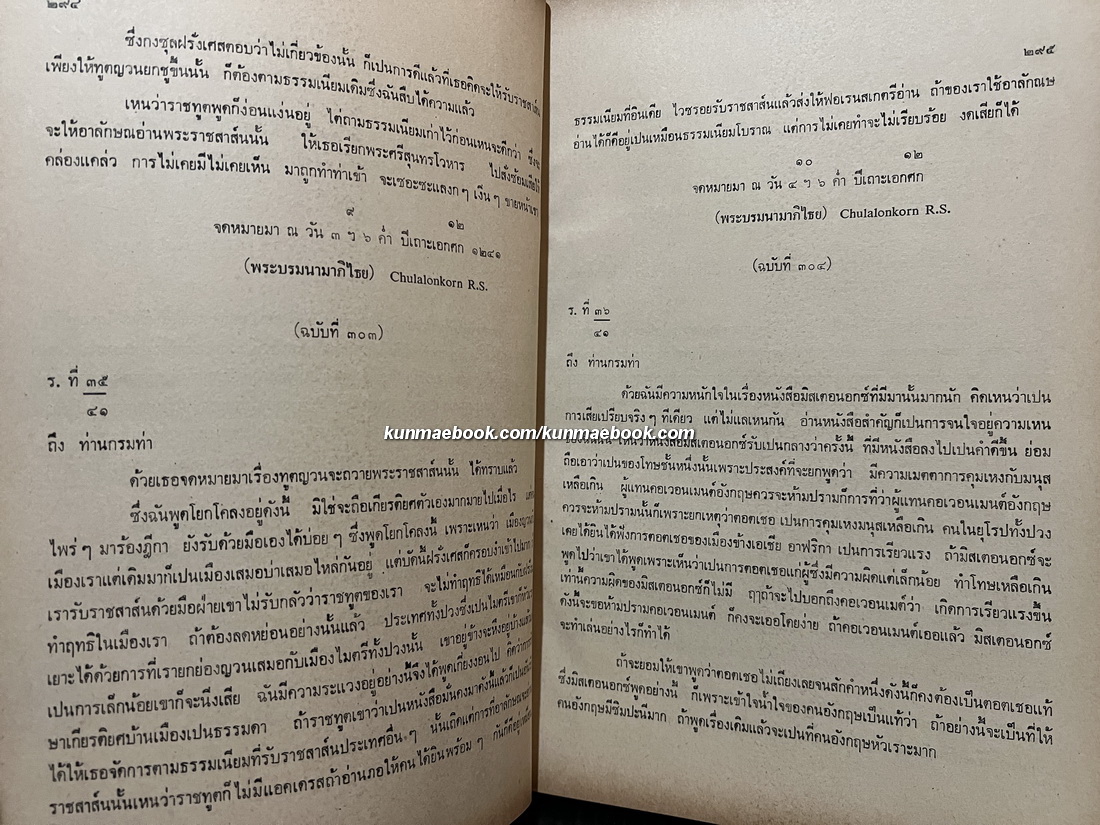 ๒๙๔
ซึ่งกงซุลฝรั่งเศสตอบว่าไม่เกี่ยวข้องนั้น ก็เปนการดีแล้วที่เธอคิดจะให้รับราชสาส์น
เพียงให้ทูตญวนยกชูขึ้นนั้น ก็ต้องตามธรรมเนียมเดิมซึ่งฉันสืบได้ความแล้ว
เหนว่าราชทูตพูดก็ง่อนแง่นอยู่ ได้ถามธรรมเนียมเก่าไว้ก่อนเหนจะดีกว่า ซึ่งจะ
จะให้อาลักษณอ่านพระราชสาส์นนั้น ให้เธอเรียกพระศรีสุนทรโวหาร ไปสั่งซ้อมเสียให้
คล่องแคล่ว การไม่เคยมีไม่เคยเห็น มาถูกทำท่าเข้า จะเซอะซะแลงก ๆ เงิ่น ๆ ขายหน้าเขา
๙ ๑๒
จดหมายมา ณ วัน ๓ ฯ ๖ ค่ำ ปีเถาะเอกศก ๑๒๔๑
(พระบรมนามาภิไธย) Chulalonkorn R.S.
(ฉบับที่ ๓๐๓)
ร. ที่ ๓๕
๔๑
ถึง ท่านกรมท่า
ด้วยเธอจดหมายมาเรื่องทูตญวนจะถวายพระราชสาส์นนั้น ได้ทราบแล้ว
ซึ่งฉันพูดโยกโคลงอยู่ดังนี้ มิใช่จะถือเกียรติยศตัวเองมากมายไปเมื่อไร
ไพร่ ๆ มาร้องฎีกา ยังรับด้วยมือเองได้บ่อย ๆ ซึ่งพูดโยกโคลงนี้ เพราะเหนว่า เมืองญวนกับ
เมืองเราแต่เดิมมาก็เปนเมืองเสมอบ่าเสมอไหล่กันอยู่ แต่บัดนี้ฝรั่งเศสก็ครอบงำเข้าไปมาก
เรารับราชสาส์นด้วยมือฝ่ายเขาไม่รับกลัวว่าราชทูตของเรา จะไม่ทำฤทธิได้เหมือนกับ
ทำฤทธิในเมืองเรา ถ้าต้องลดหย่อนอย่างนั้นแล้ว ประเทศทั้งปวงซึ่งเปนไมตรีเขาก็
เยาะได้ด้วยการที่เรายกย่องญวนเสมอกับเมืองไมตรีทั้งปวงนั้น เขาอยู่ข้างจะหึงอยู่บ้างแล้ว
เปนการเล็กน้อยเขาก็จะนิ่งเสีย ฉันมีความระแวงอยู่อย่างนี้จึงได้พูดเกี่ยงงอนไป คิดว่าการ
ษาเกียรติยศบ้านเมืองเปนธรรมดา ถ้าราชทูตเขาว่าเปนหนังสือมั่นคงมาดังนี้แล้วก็เปน
ได้ให้เธอจัดการตามธรรมเนียมที่รับราชสาส์นประเทศอื่น ๆ นั้นเถิดแต่การที่อาลักษณจะ
ราชสาส์นนั้นเหนว่าราชทูตก็ ไม่มีแอดเดรสถ้าอ่านภอให้คนได้ยินพร้อม ๆ กันก็ดีอยู่
๒๙๕
ธรรมเนียมที่อินเดีย ไวซรอยรับราชสาส์นแล้วส่งให้ฟอเรนสเกตรีอ่าน ถ้าของเราใช้อาลักณษ
อ่านได้ก็ดีอยู่เปนเหมือนธรรมเนียมโบราณ แต่การไม่เคยทำจะไม่เรียบร้อย งดเสียก็ได้
๑๐ ๑๒
จดหมายมา ณ วัน ๔ ฯ ๖ ค่ำ ปีเถาะเอกศก
(พระบรมนามาภิไธย) Chulalonkorn R.S.
(ฉบับที่ ๓๐๔)
ร. ที่ ๓๖
๔๑
ถึง ท่านกรมท่า
ด้วยฉันมีความหนักใจในเรื่องหนังสือมิสเตอนอกซ์ที่มีมานั้นมากนัก คิดเหนว่าเปน
การเสียเปรียบจริง ๆ ทีเดียว แต่ไม่แลเหนกัน อ่านหนังสือสำคัญก็เปนการจนใจอยู่ความเหน
kunmaebook.com/kunmaebook.com
เหนว่าหนังสือมิสเตอนอกซ์รับเปนกลางว่าครั้งนี้ ที่มีหนังสือลงไปเปนคำดีขึ้น ย่อม
ถือเอาว่าเปนของโทษชั้นหนึ่งนั้นเพราะประสงค์ที่จะยกพูดว่า มีความเมตตาการคุมเหงกับมนุส
เหลือเกิน ผู้แทนคอเวอนเมนต์อังกฤษควรจะห้ามปรามก็การที่ว่าผู้แทนคอเวอนเมนต์อังกฤษ
ควรจะห้ามปรามนั้นก็เพราะยกเหตุว่าตอดเชอ เปนการคุมเหงมนุสเหลือเกิน คนในยุโรปทั้งปวง
เคยได้ยินได้ฟังการตอดเชอของเมืองข้างเอเชีย อาฟริกา เปนการเรี่ยวแรง ถ้ามิสเตอนอกซ์จะ
พูดไปว่าเขาได้พูดเพราะเห็นว่าเปนการตอดเชอแก่ผู้ซึ่งมีความผิดแต่เล็กน้อย ทำโทษเหลือเกิน
เท่านี้ความผิดของมิสเตอนอกซ์ก็ไม่มี ฤๅถ้าจะไปบอกถึงคอเวอนเมต์ว่า เกิดการเรี่ยวแรงขึ้น
ดังนี้จะขอห้ามปรามคอเวอนเมนต์ ก็คงจะเออโดยง่าย ถ้าคอเวอนเมนต์เออแล้ว มิสเตอนอกซ์
จะทำเล่นอย่างไรก็ทำได้
ถ้าจะยอมให้เขาพูดว่าตอดเชอไม่เถียงเลยจนสักคำหนึ่งดังนี้ก็คงต้องเปนตอดเชอแท้
ซึ่งมิสเตอนอกซ์พูดอย่างนี้ ก็เพราะเข้าใจน้ำใจของคนอังกฤษเป็นแท้ว่า ถ้าอย่างนี้จะเป็นที่ให้
คนอังกฤษมีซิมปะนีมาก ถ้าพูดเรื่องเดิมแล้วจะเปนที่คนอังกฤษหัวเราะมาก